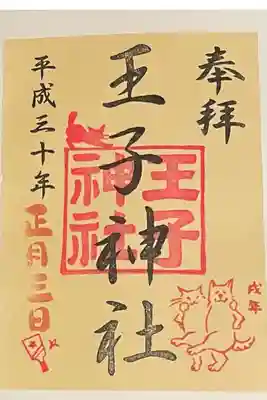 奉拝
王子神社
王子
神社
平成三十年
正月三日
戌年